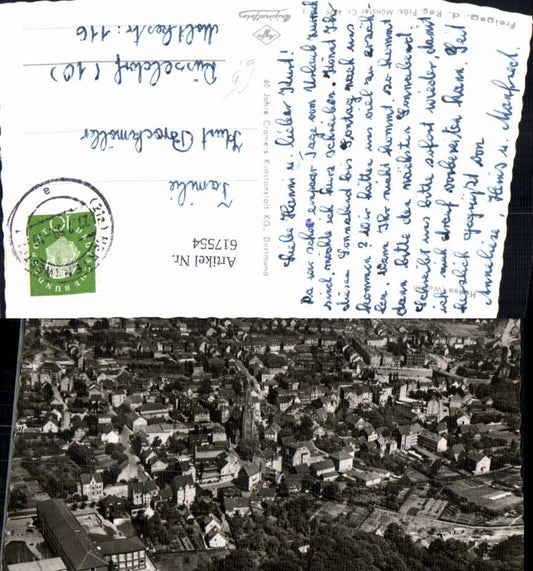 Freigeg. d. Reg. Präs. Münster Cr.
60 Jahre Cramers Kunstanstalt KG., Dortmund
Artikel Nr.
617554
Familie
Kurt Brockmöller
Düsseldorf (10)
Moltkestr: 116
Liebe Hanni u. lieber Kurt!
Da wir schon einige Tage vom Urlaub zurück
sind, möchte ich kurz schreiben. Könnt Ihr
diesen Sonnabend bis Sonntag nach uns
kommen? Wir hätten uns viel zu erzäh-
len. Wenn Ihr nicht kommt, so kommt
dann bitte den nächsten Sonnabend.
Schreibt uns bitte sofort wieder, damit
ich mich drauf vorbereiten kann. Seid
herzlich gegrüßt von
Anneliese, Heinz u. Manfred.